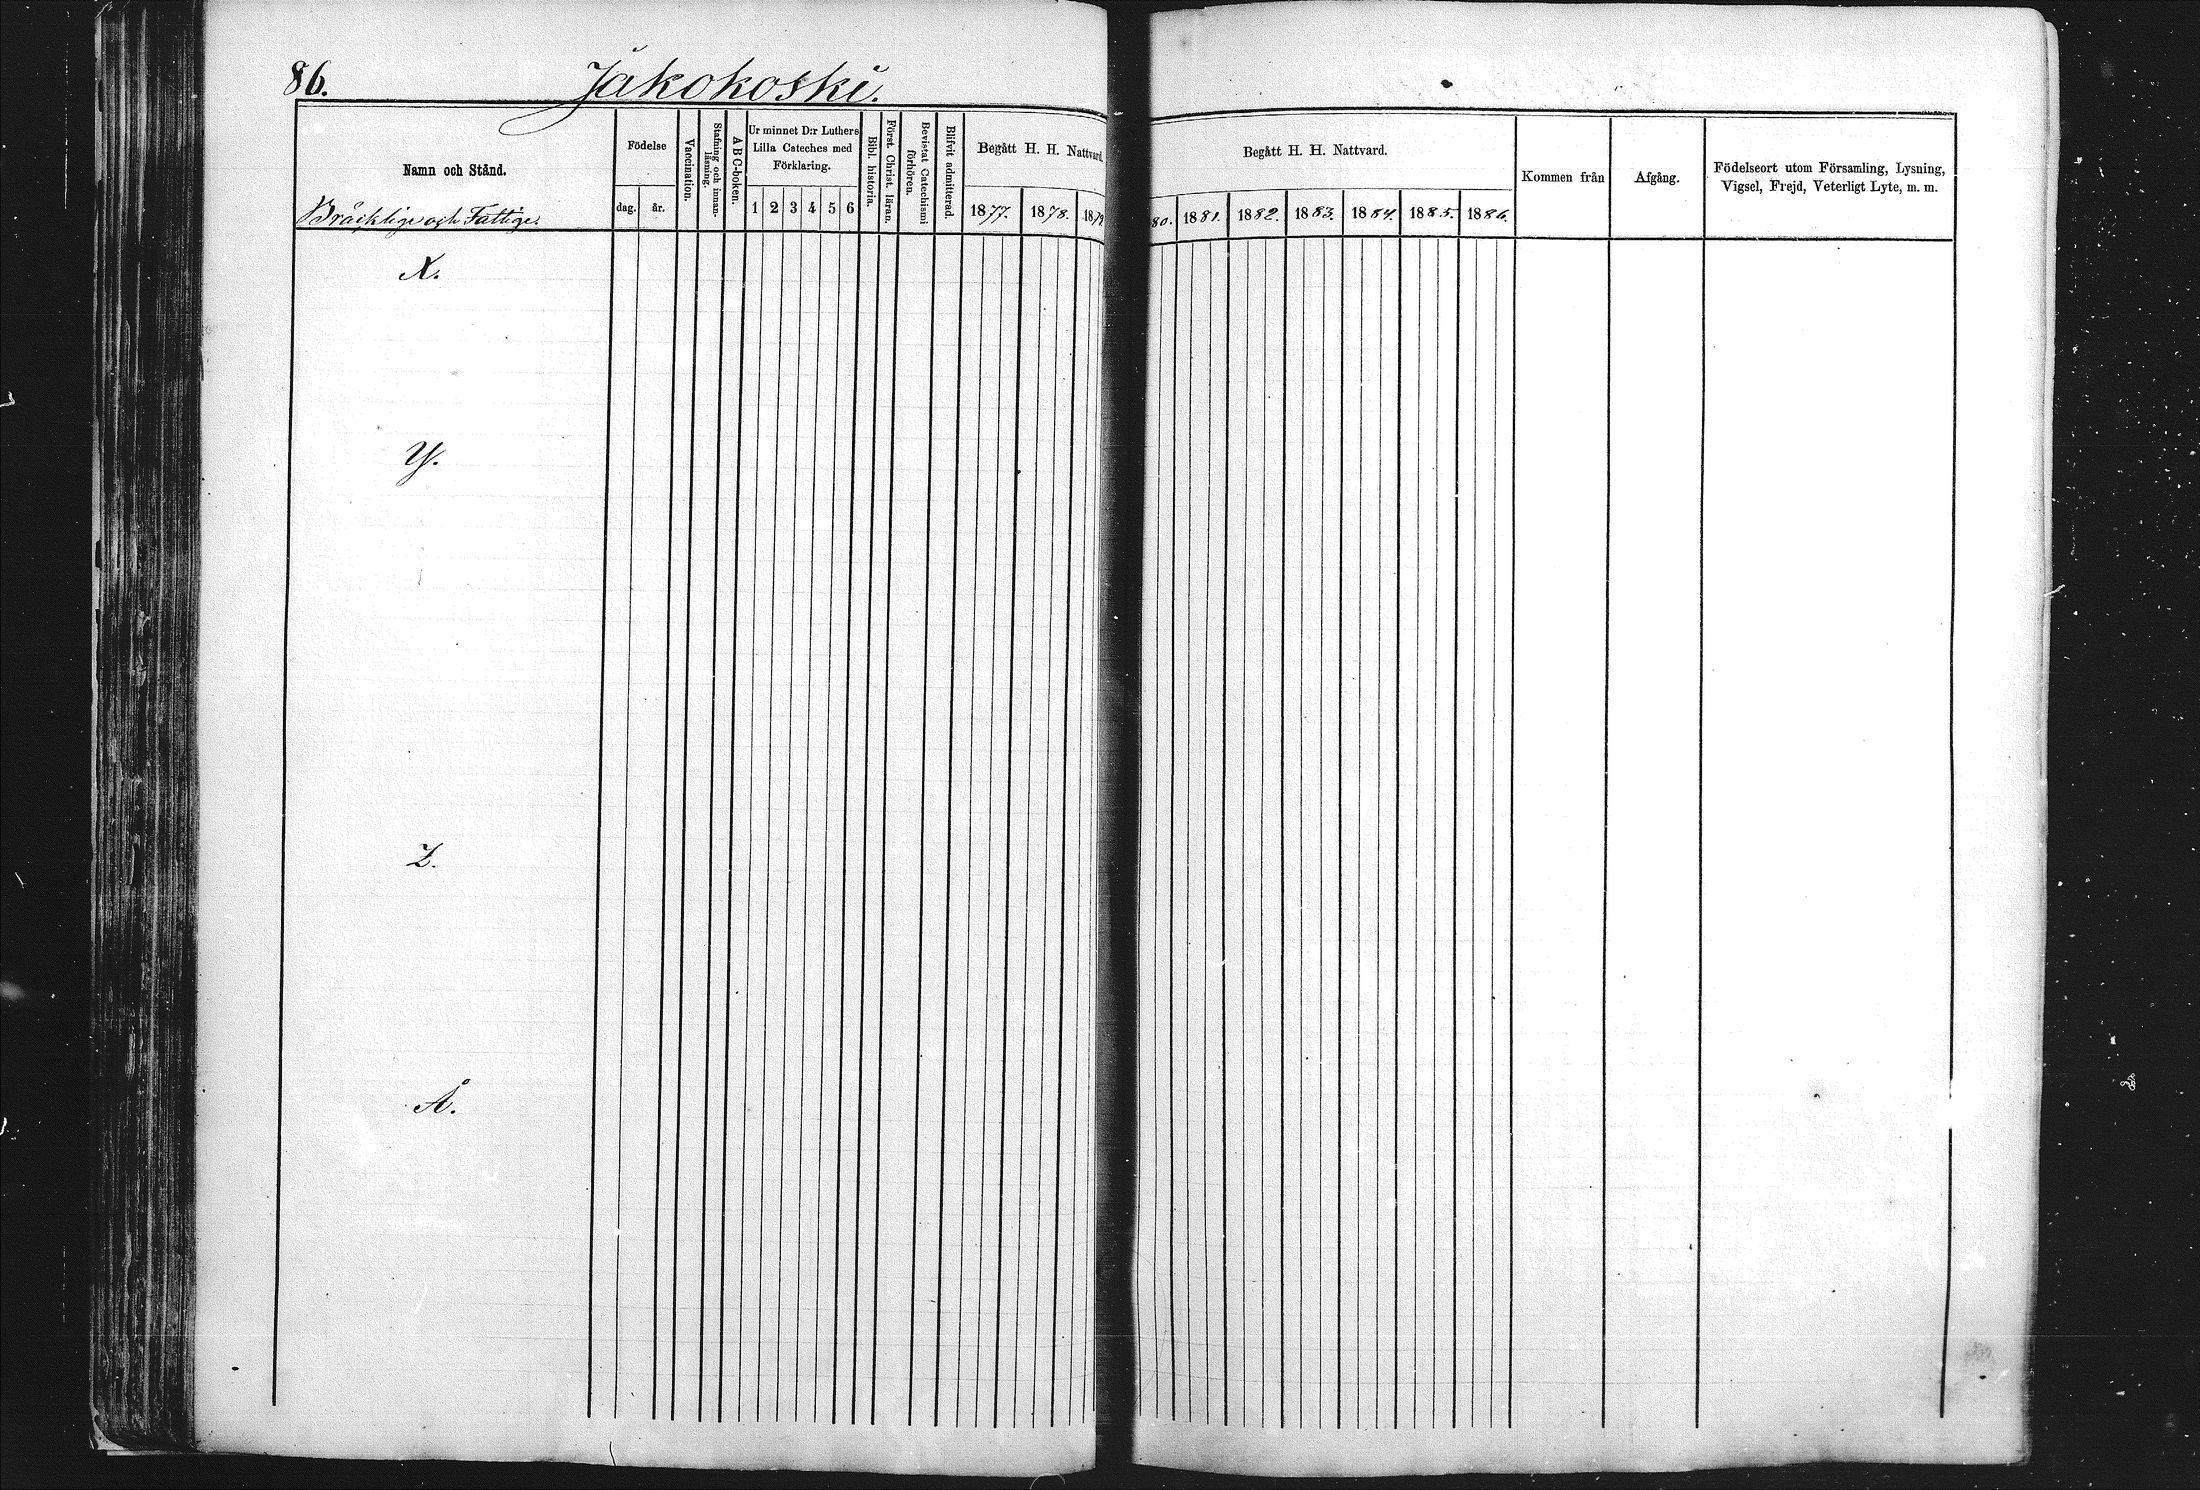 86.
Jakokoski.
Namn och Stånd.
Bräcklige och Fattige.
Födelse
dag.
år.
Vaccination.
Stafning och innan-
läsning.
A B C-boken.
Ur minnet D:r Luthers
Lilla Cateches med
Förklaring.
1 2 3 4 5 6
Bibl. historia.
Först. Christ. läran.
Bevistat Catechismi
förhören.
Blifvit admitterad.
Begått H. H. Nattvard.
1877. 1878. 1879
Begått H. H. Nattvard.
80. 1881. 1882. 1883. 1884. 1885. 1886.
Kommen från
Afgång.
Födelseort utom Församling, Lysning,
Vigsel, Frejd, Veterligt Lyte, m. m.
X.
Y.
Z.
Å.